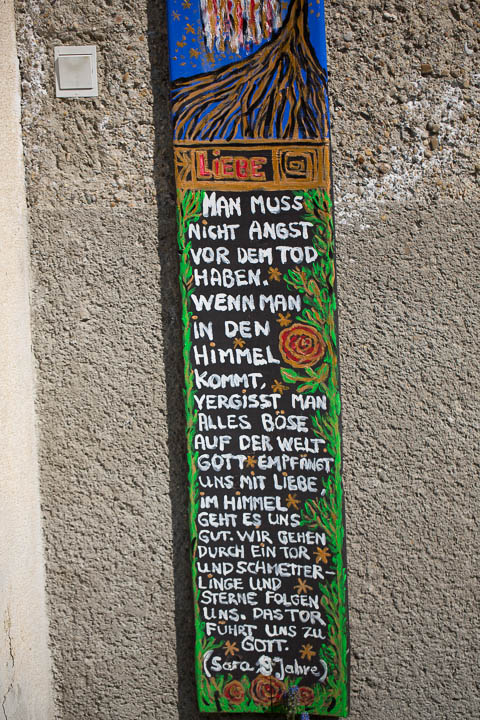 LIEBE
MAN MUSS
NICHT ANGST
VOR DEM TOD
HABEN.
WENN MAN
IN DEN
HIMMEL
KOMMT,
VERGISST MAN
ALLES BÖSE
AUF DER WELT.
GOTT EMPFÄNGT
UNS MIT LIEBE,
IM HIMMEL
GEHT ES UNS
GUT. WIR GEHEN
DURCH EIN TOR
UND SCHMETTER-
LINGE UND
STERNE FOLGEN
UNS. DAS TOR
FÜHRT UNS ZU
GOTT.
(Sara, 8 Jahre)